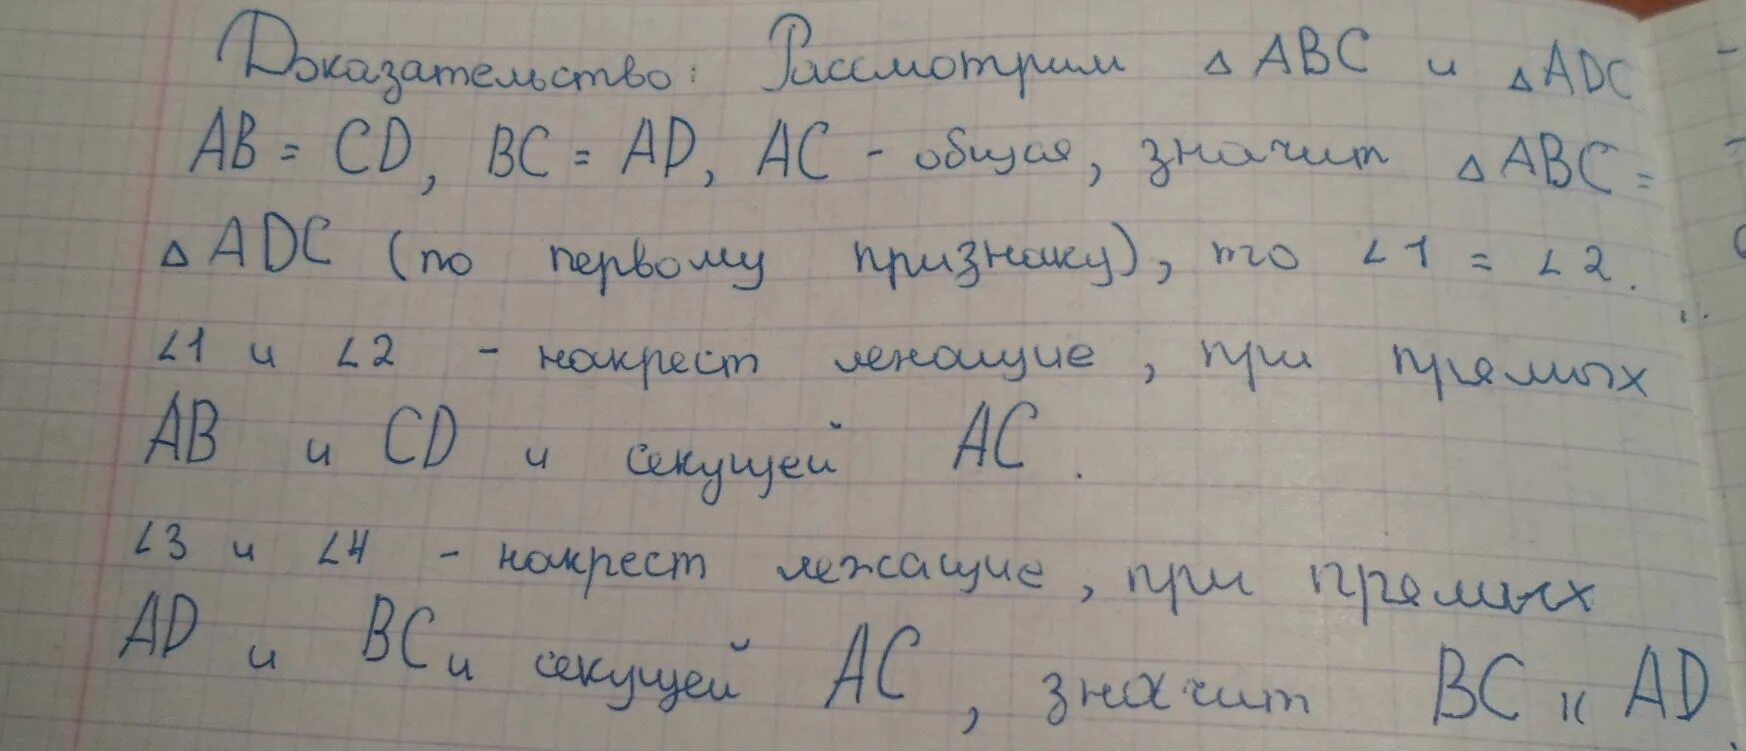 Доказательство: Рассмотрим △ABC и △ADC
AB = CD, BC = AD, AC - общая, значит △ABC =
△ADC (по первому признаку), то ∠1 = ∠2.
∠1 и ∠2 - накрест лежащие, при прямых
AB и CD и секущей AC.
∠3 и ∠4 - накрест лежащие, при прямых
AD и BC и секущей AC, значит BC || AD